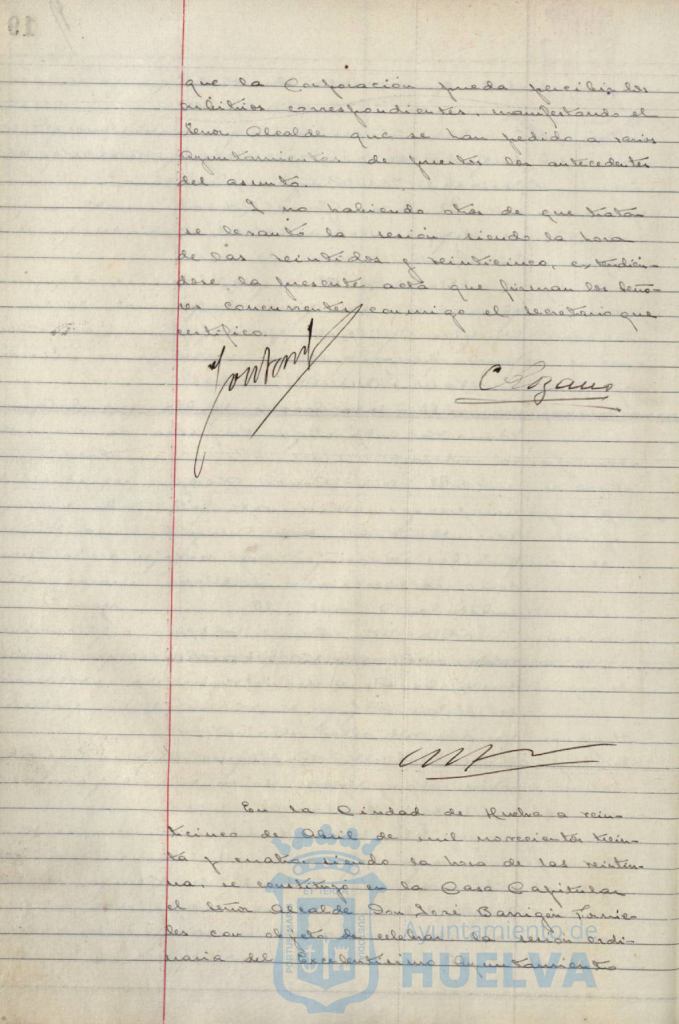 que la Corporación pueda percibir los
arbitrios correspondientes, manifestando el
Señor Alcalde que se han pedido a varios
Ayuntamientos de puertos los antecedentes
del asunto.
Y no habiendo otros de que tratar
se levantó la sesión siendo la hora
de las veintidos y veinticinco, extendién-
dose la presente acta que firman los Seño-
res concurrentes conmigo el Secretario que
certifico.
C Lozano
En la Ciudad de Huelva a vein-
ticinco de Abril de mil novecientos trein-
ta y cuatro, siendo la hora de las veintiu-
na, se constituyó en la Casa Capitular
el Señor Alcalde Don José Barrigón Fornie-
les con objeto de celebrar la sesión ordi-
naria del Excelentísimo Ayuntamiento
Ayuntamiento de
HUELVA